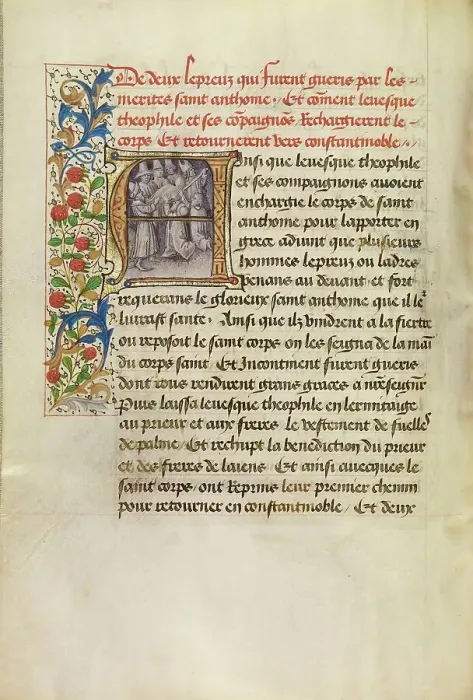 De deux lepreux qui furent gueris par les
merites saint anthoine. Et coment levesque
theophile et ses compaignons Rechargierent le
corps Et retournerent vers constantinoble
Ainsi que levesque theophile
et ses compaignons avoient
enchargie le corps de saint
anthoine pour lapporter en
grece advint que plusieurs
hommes lepreux ou ladres
venans au devant et fort
requerans le glorieux saint anthoine que il leur
livrast sante. Ainsi que ilz vindrent a la fiertre
ou reposoit le saint corps on les seigna de la main
du corps saint. Et Incontinent furent gueris
dont tous rendirent grans graces a nostre seigneur
Puis laissa levesque theophile en lermitaige
au prieur et aux freres le vestement de fuelles
de palme. Et rechupt la benediction du prieur
et des freres de laiens. Et ainsi avecques le
saint corps ont Reprins leur premier chemin
pour retourner en constantinoble. Et deux